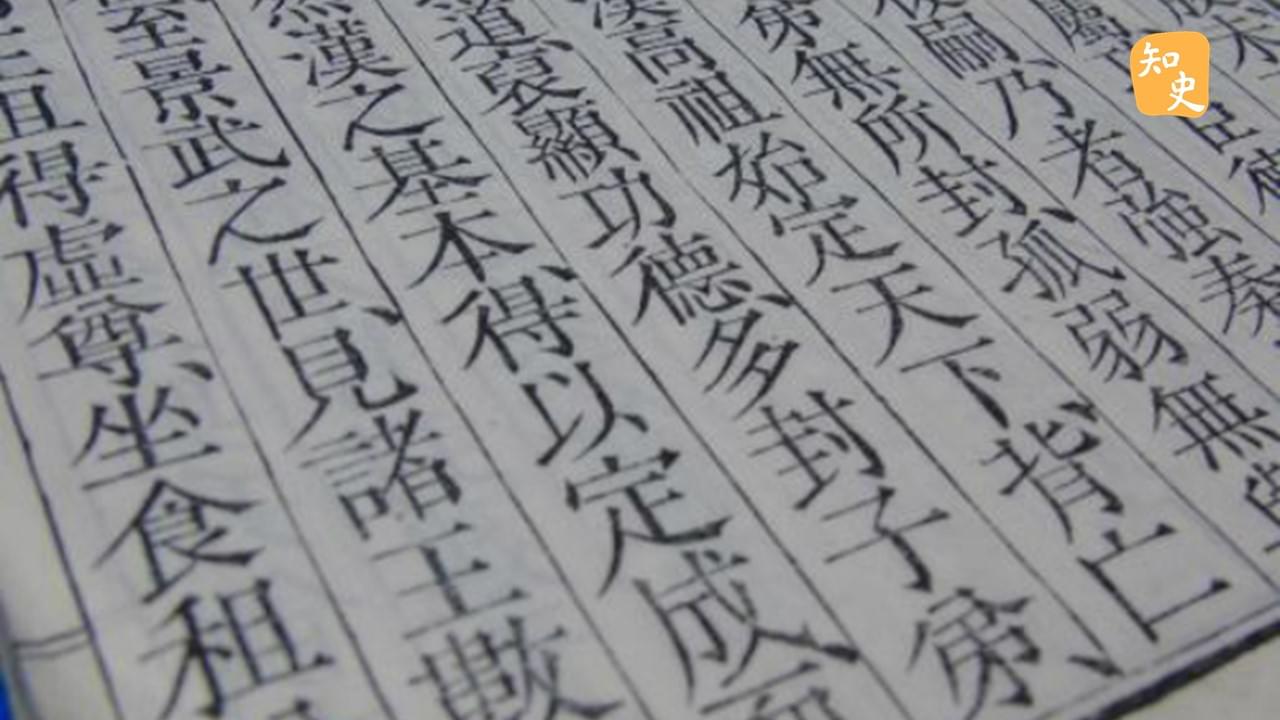 知史
未
臣德
嗣乃者強秦
弟無所封孤弱無
漢高祖始定天下背亡
道裒顯功德多封子弟、
漢之基本、得以定成
至景武之世、見諸王數
且得虛尊、坐食租